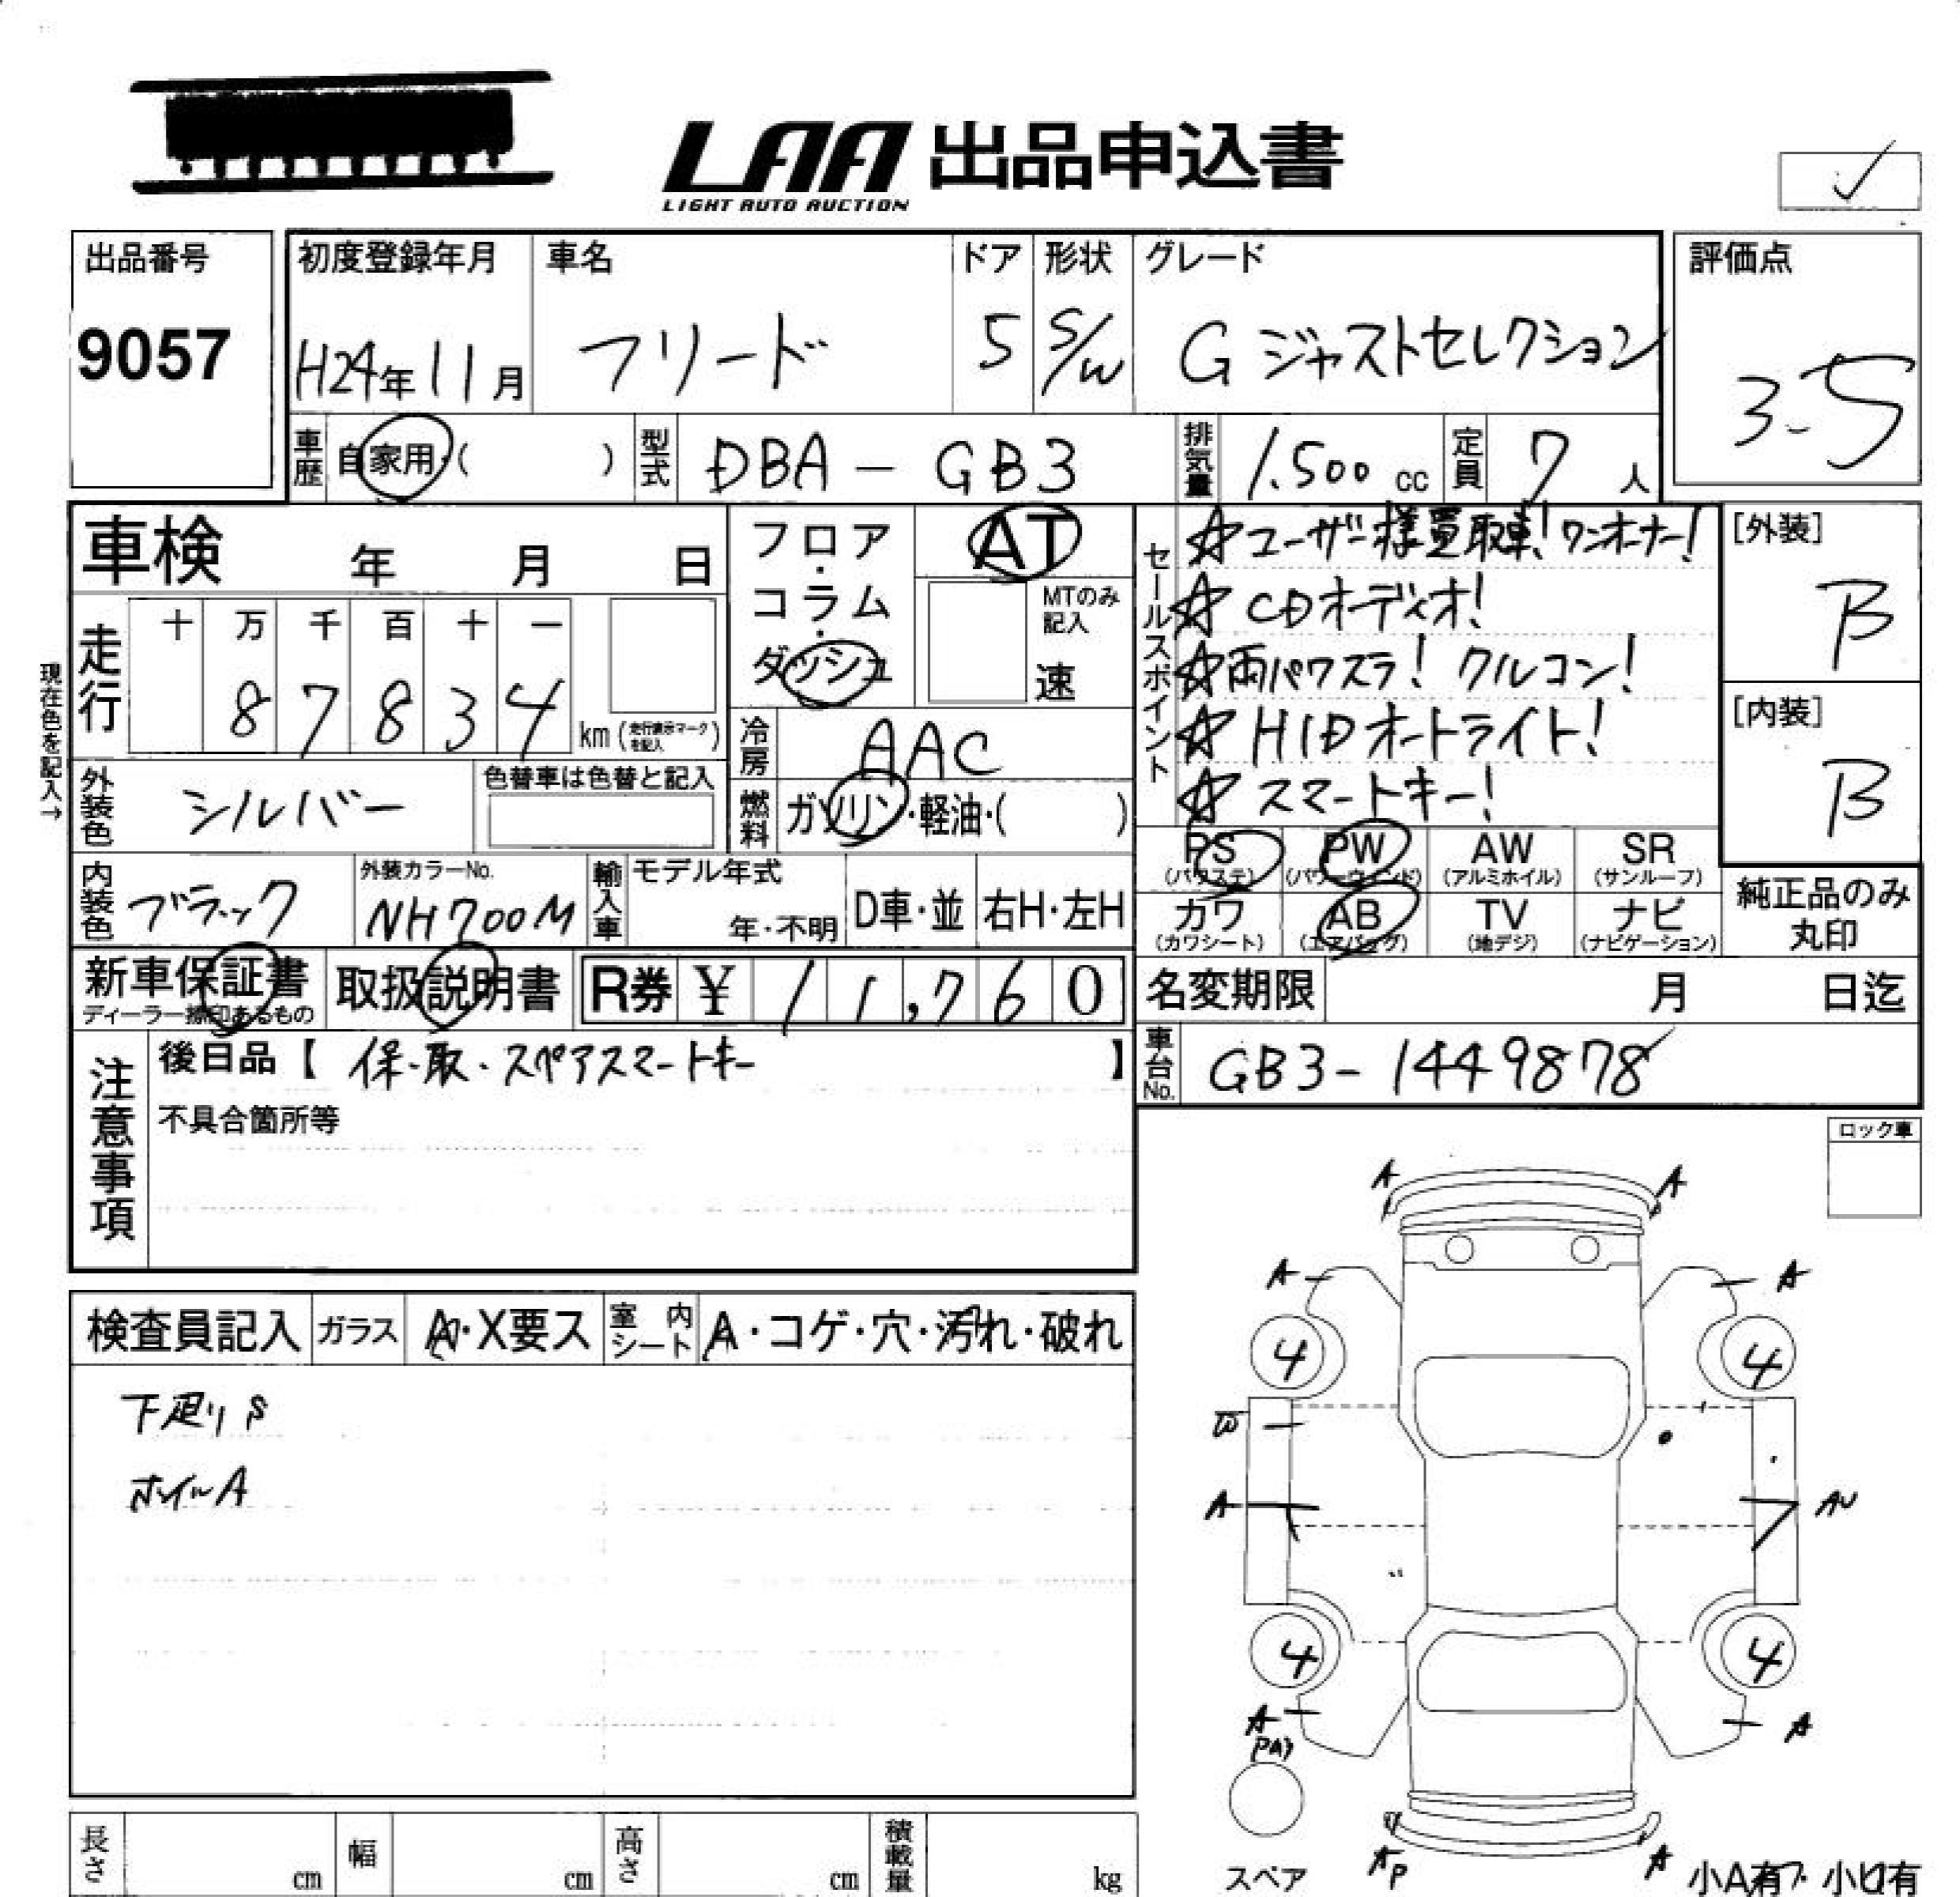 LAA 出品申込書
LIGHT AUTO AUCTION
出品番号
9057
初度登録年月
H24年11月
車名
フリード
ドア
5
形状
S/W
グレード
G ジャストセレクション
評価点
3.5
車歴
自家用・( )
型式
DBA-GB3
排気量
1.500 cc
定員
7人
車検 年 月 日
現在色を記入→
走行
十 万 千 百 十 一
8 7 8 3 4
km(走行表示マークを記入)
フロア・コラム・ダッシュ
AT
MTのみ記入
速
冷房
AAC
燃料
ガソリン・軽油・( )
外装色
シルバー
色替車は色替と記入
内装色
ブラック
外装カラーNo.
NH700M
輸入車
モデル年式
年・不明
D車・並
右H・左H
セールスポイント
☆ユーザー様買取車!ワンオーナー!
☆CDオーディオ!
☆両パワスラ! クルコン!
☆HIDオートライト!
☆スマートキー!
[外装]
B
[内装]
B
PS
(パワステ)
PW
(パワーウィンド)
AW
(アルミホイル)
SR
(サンルーフ)
カワ
(カワシート)
AB
(エアバッグ)
TV
(地デジ)
ナビ
(ナビゲーション)
純正品のみ
丸印
新車保証書
ディーラー捺印あるもの
取扱説明書
R券 ¥ 11,760
名変期限 月 日迄
車台No.
GB3-1449878
注意事項
後日品【 保・取・スペアスマートキー 】
不具合箇所等
ロック車
検査員記入
ガラス
A・X要ス
室内シート
A・コゲ・穴・汚れ・破れ
下廻りS
ホイルA
A A
A A
4 4
W
A AU
4 4
A A
スペア
AP A
小A有 小U有
長さ cm
幅 cm
高さ cm
積載量 kg